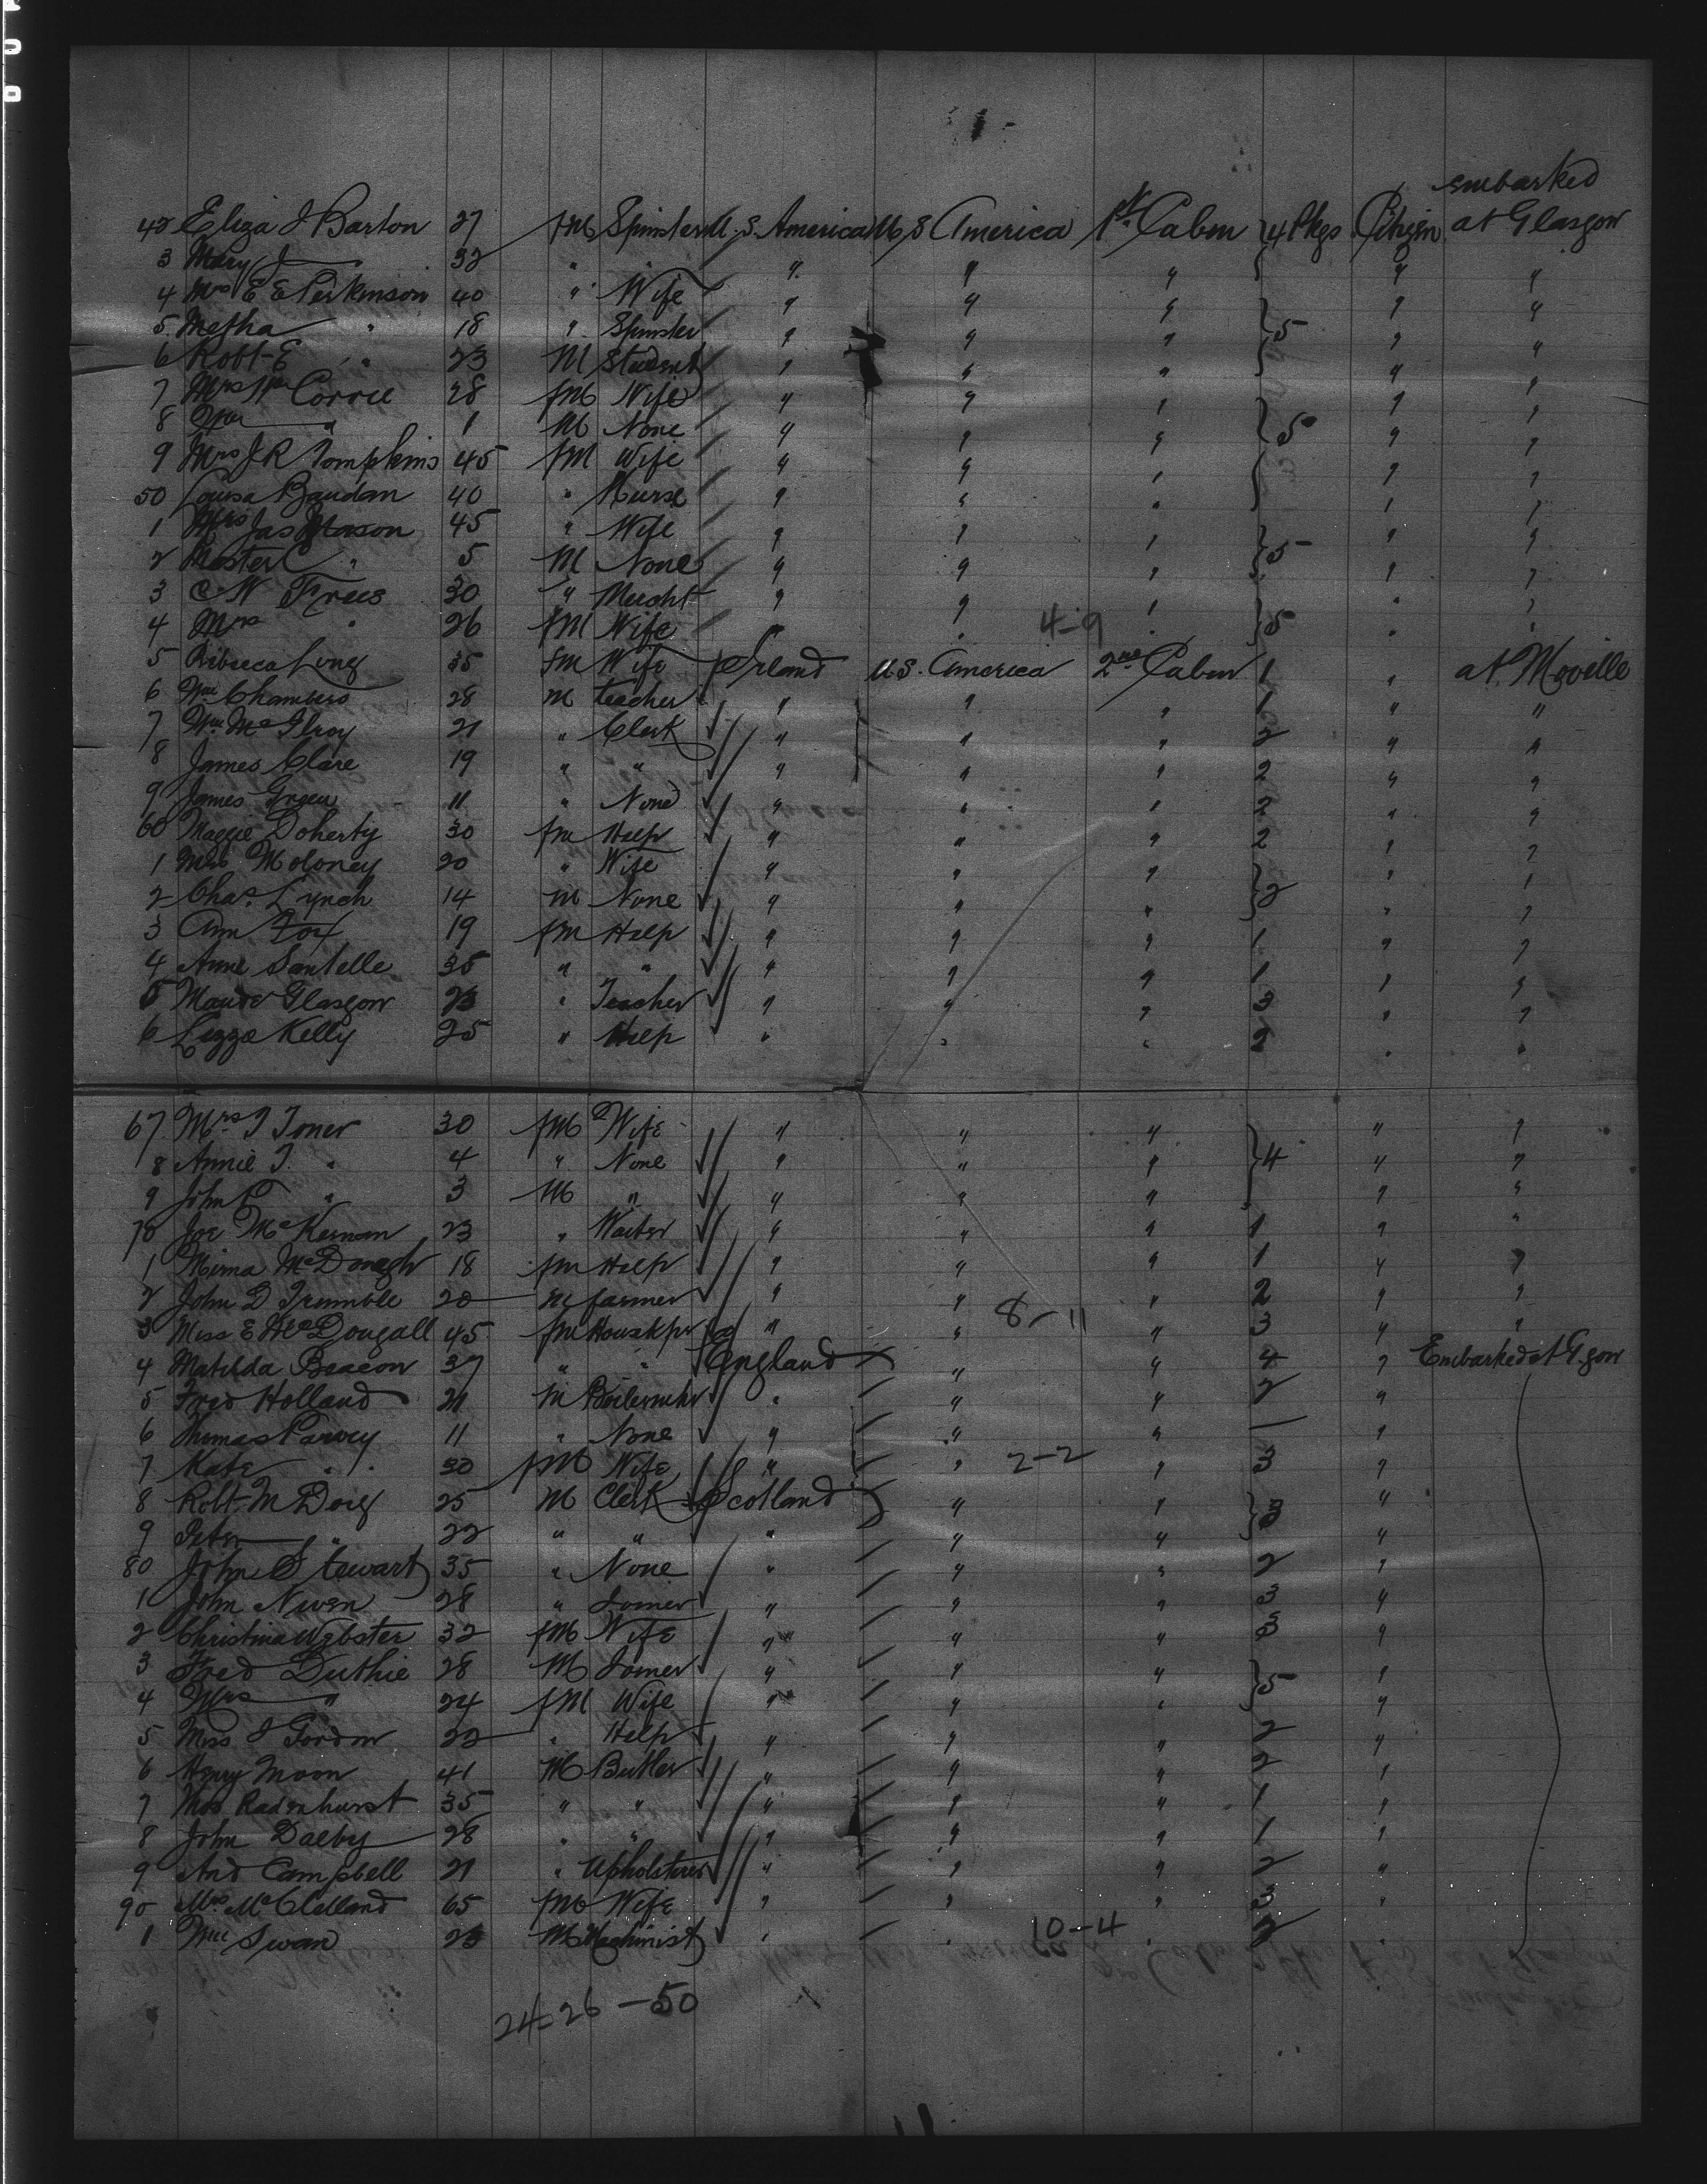 embarked
42 Eliza J Barton 27 fm Spinster U.S. America U S America 1st Cabin } 4 Pkgs Citizen at Glasgow
3 Mary J " 32 " " " " " " "
4 Mrs E E Perkinson 40 " Wife " " " " "
5 Metha " 18 " Spinster " " " } 5 " "
6 Robt E " 23 M Student " " " " "
7 Mrs Wm Corrie 28 fm Wife " " " " "
8 Wm " 1 M None " " " } 5 " "
9 Mrs J R Tompkins 45 fm Wife " " " " "
50 Louisa Baudan 40 " Nurse " " " " "
1 Mrs Jas Mason 45 " Wife " " " " "
2 Master C " 5 M None " " " } 5 " "
3 C N Frees 30 " Mercht " " " " "
4 Mrs " 26 fm Wife " 4-9 " } 5 " "
5 Ribecca Long 35 fm Wife Ireland U.S. America 2nd Cabin 1 " at Moville
6 Wm Chambers 28 m teacher " " " 1 " "
7 Wm McIlroy 21 " Clerk " " " 2 " "
8 James Clare 19 " " " " " 2 " "
9 James Green 11 " None " " " 2 " "
60 Maggie Doherty 30 fm Help " " " 2 " "
1 Mrs Moloney 20 " Wife " " " " "
2 Chas. Lynch 14 m None " " " } 2 " "
3 Ann Fox 19 fm Help " " " 1 " "
4 Anne Santelle 35 " " " " " 1 " "
5 Maude Glasgow 23 " Teacher " " " 3 " "
6 Lizzie Kelly 25 " Help " " " 2 " "
67 Mrs J Toner 30 fm Wife " " " " "
8 Annie T. " 4 " None " " " } 4 " "
9 John P " 3 M " " " " " "
70 Joe McKernan 23 " Waiter " " " 1 " "
1 Mima McDonagh 18 fm Help " " " 1 " "
2 John D Trumble 20 m farmer " " " 2 " "
3 Miss E McDougall 45 fm Houskpr " " 8-11 " 3 " "
4 Matilda Beacon 37 " " England " " 4 " Embarked at G.gow
5 Fred Holland 21 m Boilermkr " " " 2 "
6 Thomas Parvey 11 " None " " " "
7 Kate " 30 fm Wife " " 2-2 " 3 "
8 Robt M Doig 25 M Clerk Scotland " " } 3 "
9 Peter " 22 " " " " " "
80 John Stewart 35 " None " " " 2 "
1 John Niven 28 " Joiner " " " 3 "
2 Christina Webster 32 fm Wife " " " 3 "
3 Fred Duthie 28 M Joiner " " " } 5 "
4 Mrs " 24 fm Wife " " " "
5 Miss J Gordon 22 " Help " " " 2 "
6 Henry Moon 41 M Butler " " " 2 "
7 Radenhurst 35 " " " " " 1 "
8 John Dalby 28 " " " " " 1 "
9 And Campbell 21 " Upholsterer " " " 2 "
90 Mrs McClelland 65 fm Wife " " " 3 "
1 Wm Swan 23 M Machinist " " 10-4 " 2 "
24-26-50